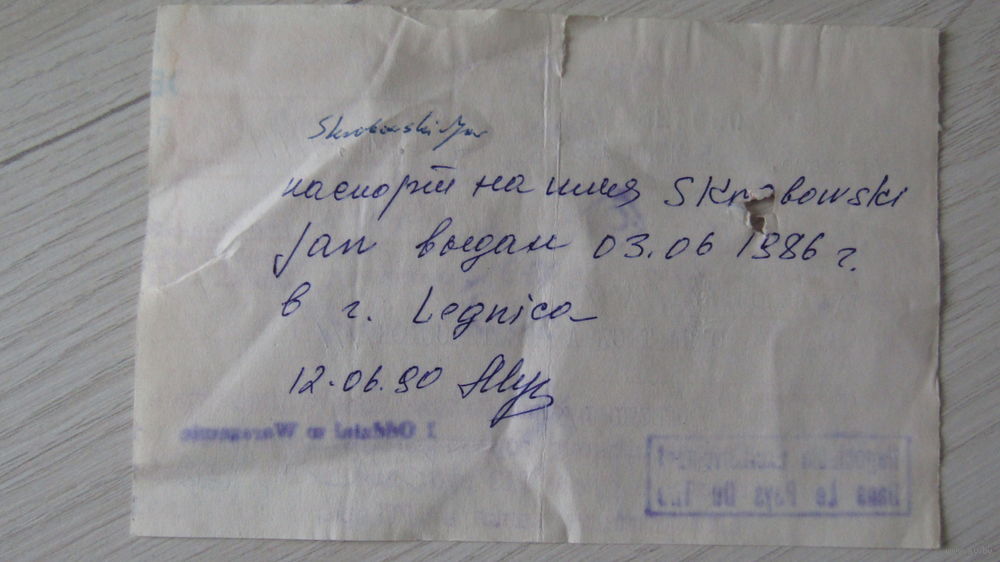 Skrobowski Jan
паспорт на имя Skrobowski
Jan выдан 03.06 1986 г.
в г. Legnica
12.06.90
I Oddział w Warszawie
Dans Le Pays De